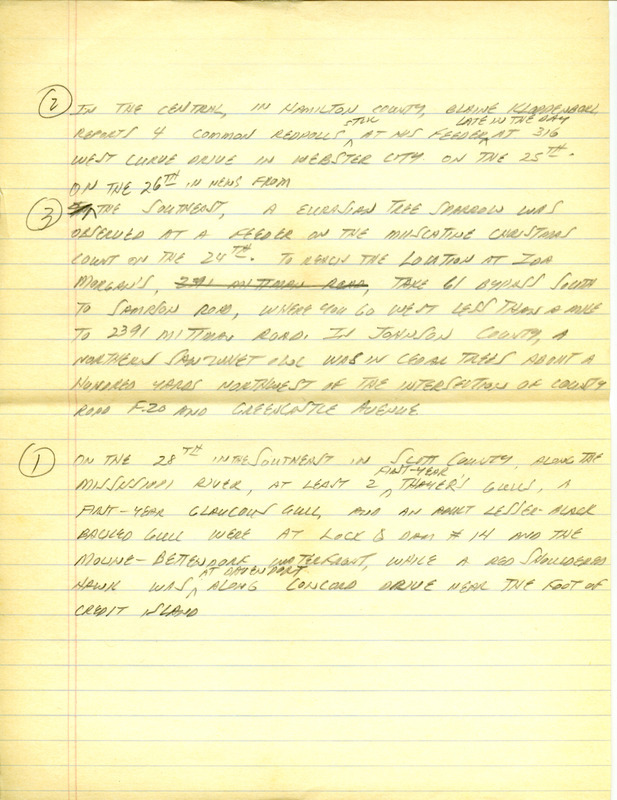 ② IN THE CENTRAL, IN HAMILTON COUNTY, BLAINE KLOPPENBORG
STILL LATE IN THE DAY
REPORTS 4 COMMON REDPOLLS ^ AT HIS FEEDER ^ AT 316
WEST CURVE DRIVE IN WEBSTER CITY ON THE 25TH.
ON THE 26TH IN NEWS FROM
③ ^ THE SOUTHEAST, A EURASIAN TREE SPARROW WAS
OBSERVED AT A FEEDER ON THE MUSCATINE CHRISTMAS
COUNT ON THE 24TH. TO REACH THE LOCATION AT IDA
MORGAN'S, 2391 MITTMAN ROAD, TAKE 61 BYPASS SOUTH
TO SAMPSON ROAD, WHERE YOU GO WEST LESS THAN A MILE
TO 2391 MITTMAN ROAD. IN JOHNSON COUNTY, A
NORTHERN SAW-WHET OWL WAS IN CEDAR TREES ABOUT A
HUNDRED YARDS NORTHWEST OF THE INTERSECTION OF COUNTY
ROAD F-20 AND GREENCASTLE AVENUE.
① ON THE 28TH IN THE SOUTHEAST IN SCOTT COUNTY, ALONG THE
FIRST-YEAR
MISSISSIPPI RIVER, AT LEAST 2 ^ THAYER'S GULLS, A
FIRST-YEAR GLAUCOUS GULL, AND AN ADULT LESSER-BLACK
BACKED GULL WERE AT LOCK & DAM #14 AND THE
MOLINE-BETTENDORF WATERFRONT, WHILE A RED SHOULDERED
AT DAVENPORT
HAWK WAS ^ ALONG CONCORD DRIVE NEAR THE FOOT OF
CREDIT ISLAND